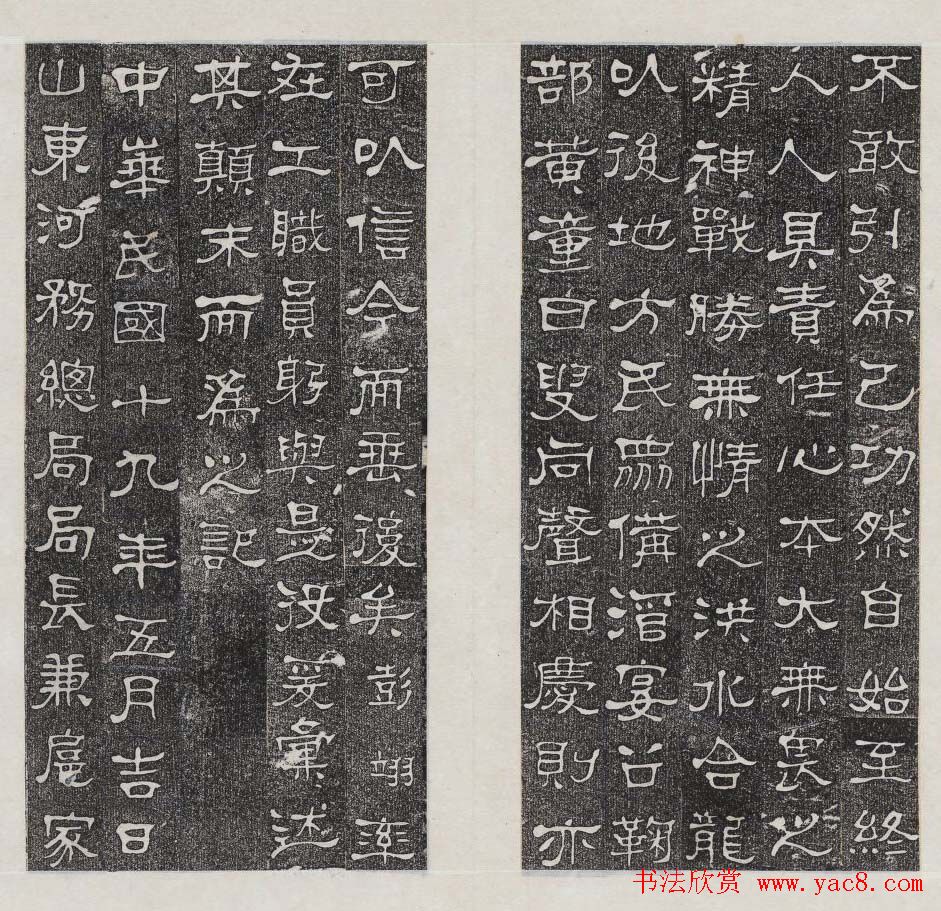 不敢引為己功然自始至終
人人具責任心本大無畏之
精神戰勝無情之洪水合龍
以後地方民眾備酒宴召鞠
部黃童白叟同聲相慶則亦
可以信今而垂後矣彭翊率
在工職員躬與是役爰彙述
其顛末而為之記
中華民國十九年五月吉日
山東河務總局局長兼扈家
书法欣赏 www.yac8.com